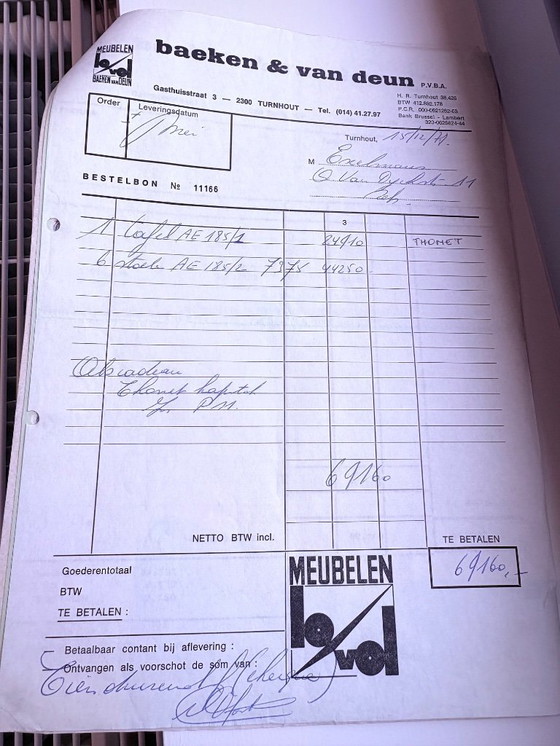 MEUBELEN
bavol
BAEKEN VAN DEUN
baeken & van deun P.V.B.A.
Gasthuisstraat 3 — 2300 TURNHOUT — Tel. (014) 41.27.97
H. R. Turnhout 38.420
Bank Brussel - Lambert
Order
Leveringsdatum
Mei
Turnhout, 15/12/
M
Q Van Dyckstr 11
BESTELBON № 11166
3
1 tafel AE 185/1 24910 THONET
6 stoelen AE 185/2 7375 44250
Als cadeau
Thonet kapstok
69160
NETTO BTW incl.
TE BETALEN
69160,-
Goederentotaal
BTW
TE BETALEN :
MEUBELEN
bavol
Betaalbaar contant bij aflevering :
Ontvangen als voorschot de som van :
Tienduizend